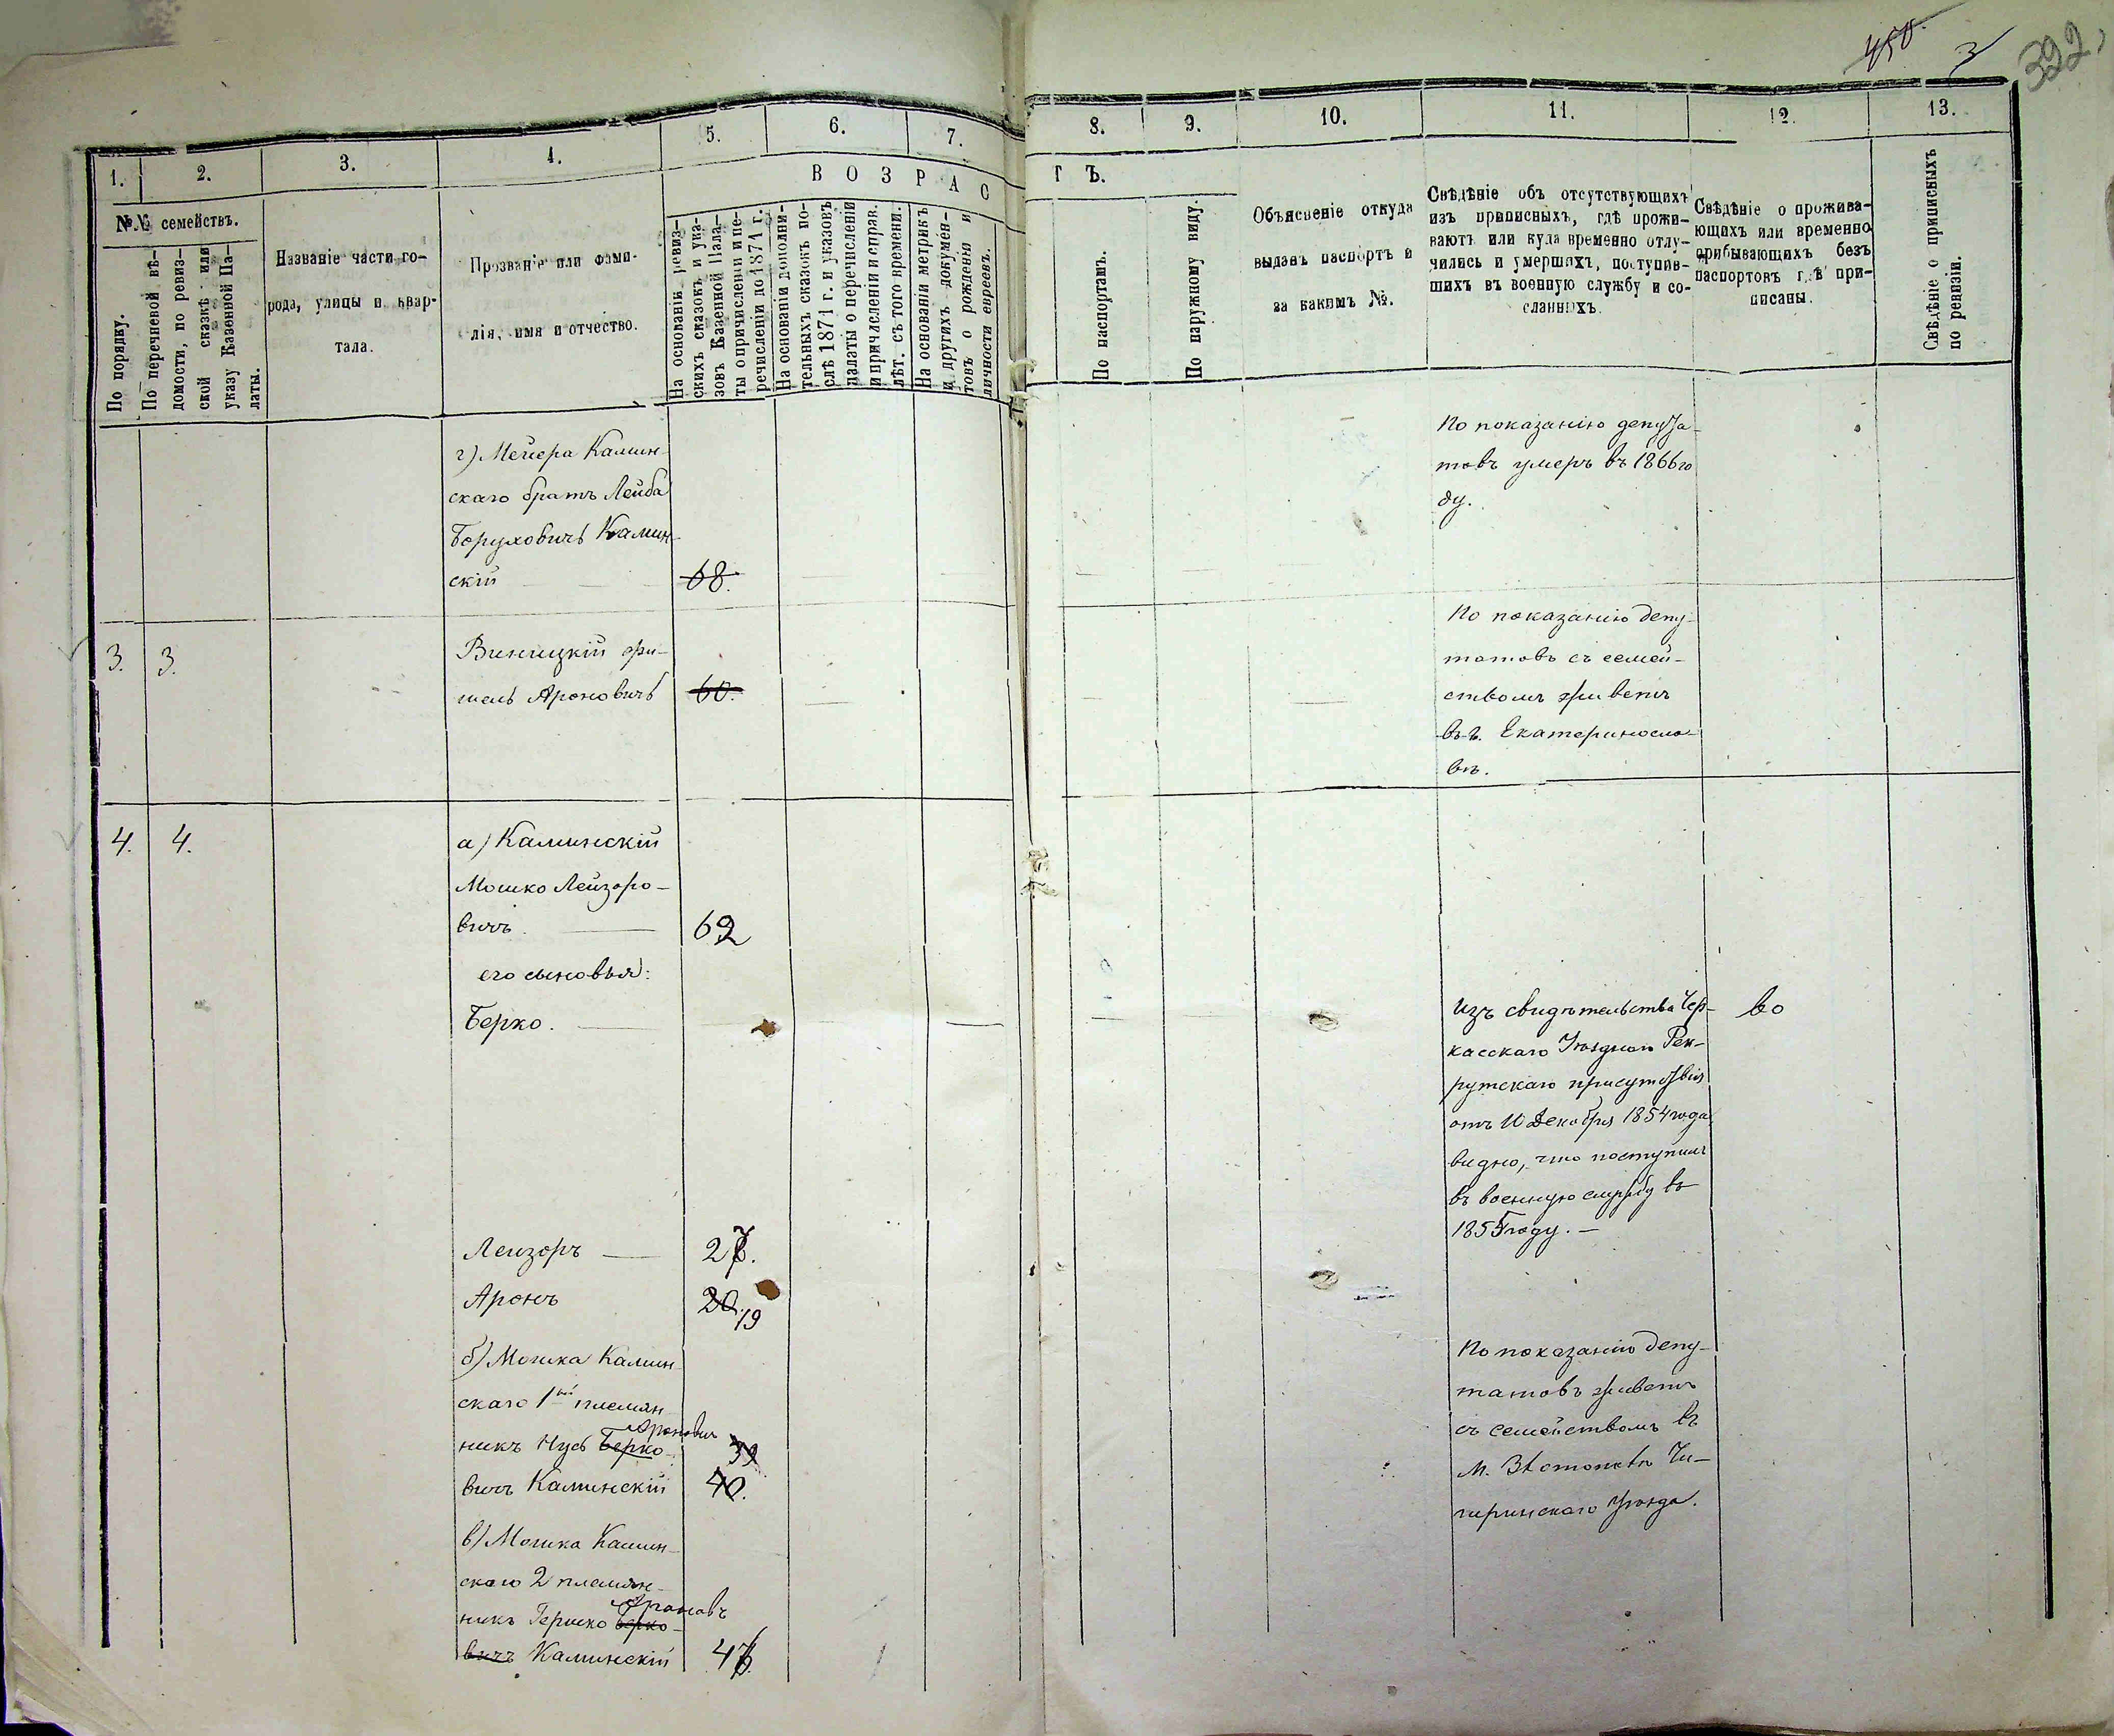 450.
3
392,
1.
2.
3.
4.
5.
6.
7.
8.
9.
10.
11.
12.
13.
№.№ семействъ.
По порядку.
По перечневой вѣ-
домости, по ревиз-
ской сказкѣ или
указу Казенной Па-
латы.
Названіе части го-
рода, улицы и квар-
тала.
Прозваніе или фами-
лія, имя и отчество.
ВОЗРАС
ТЪ.
На основаніи ревиз-
скихъ сказокъ и ука-
зовъ Казенной Пала-
ты о причисленіи и пе-
речисленіи до 1871 г.
На основаніи дополни-
тельныхъ сказокъ по-
слѣ 1871 г. и указовъ
палаты о перечисленіи
и причисленіи и справ.
лѣт. съ того времени.
На основаніи метрикъ
и другихъ докумен-
товъ о рожденіи и
личности евреевъ.
По паспортамъ.
По наружному виду.
Объясненіе откуда
выданъ паспортъ и
за какимъ №.
Свѣдѣніе объ отсутствующихъ
изъ приписныхъ, гдѣ прожи-
ваютъ или куда временно отлу-
чились и умершихъ, поступив-
шихъ въ военную службу и со-
сланныхъ.
Свѣдѣніе о прожива-
ющихъ или временно
прибывающихъ безъ
паспортовъ гдѣ при-
писаны.
Свѣдѣніе о приписныхъ
по ревизіи.
г) Мейера Камин-
скаго братъ Лейба
Боруховичъ Камин-
скій
68.
По показанію депута-
товъ умеръ въ 1866 го
ду.
3.
3.
Виницкій
шель Ароновичъ
60.
По показанію депу-
татовъ съ семей-
ствомъ живетъ
въ г. Екатериносла-
вѣ.
4.
4.
а) Каминскій
Мошко Лейзоро-
вичъ
62
его сыновья:
Берко.
Изъ свидѣтельства Чер-
касскаго Уѣзднаго Рек-
рутскаго присутствія
отъ 10 Декабря 1854 года
видно, что поступилъ
въ военную службу въ
1855 году. —
во
Лейзоръ
27.
Аронъ
20.
19
б) Мошка Камин-
скаго 1ый племян-
Ароновичъ
никъ Нусь Берко-
39
вичъ Каминскій
40.
По показанію депу-
татовъ живетъ
съ семействомъ въ
М. Чи-
гиринскаго уѣзда.
в) Мошка Камин-
скаго 2 племян-
Ароновъ
никъ Гершко Берко-
вичъ Каминскій